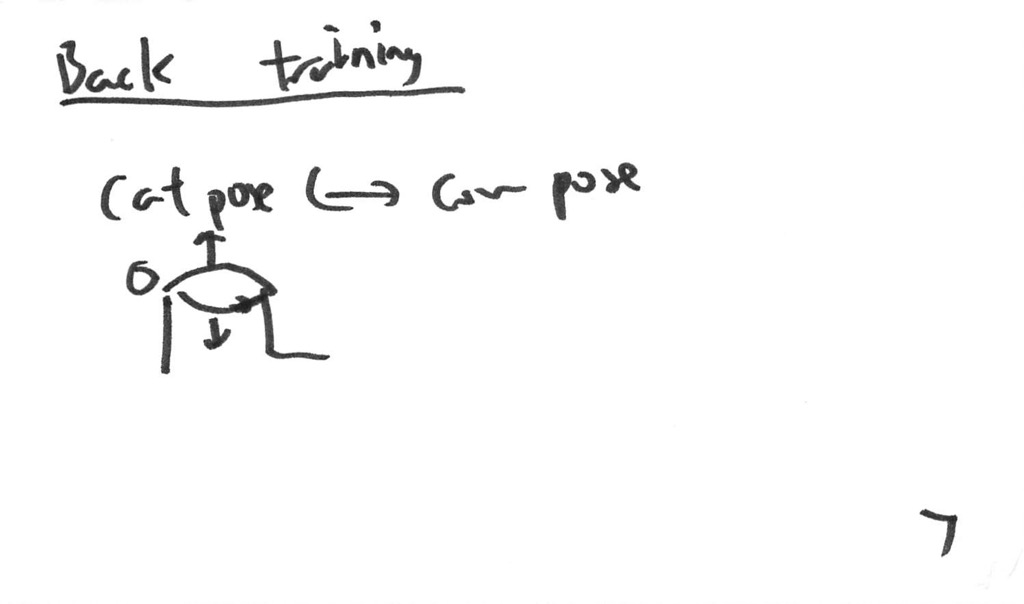 Back training
Cat pose ⟷ Cow pose
7